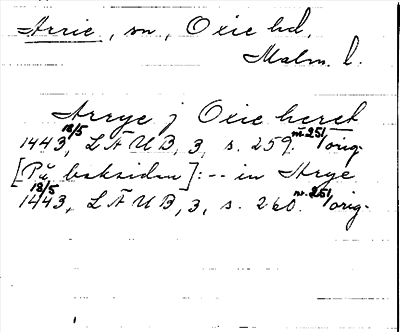 Arrie, sn., Oxie hd.
Malm. l.
Arrye j Oxie heret
1443 18/5, LÄUB, 3, s. 259. nr. 251 orig.
[På baksidan]: -- in Arye
18/5 1443, LÄUB, 3, s. 260. nr. 251 orig.